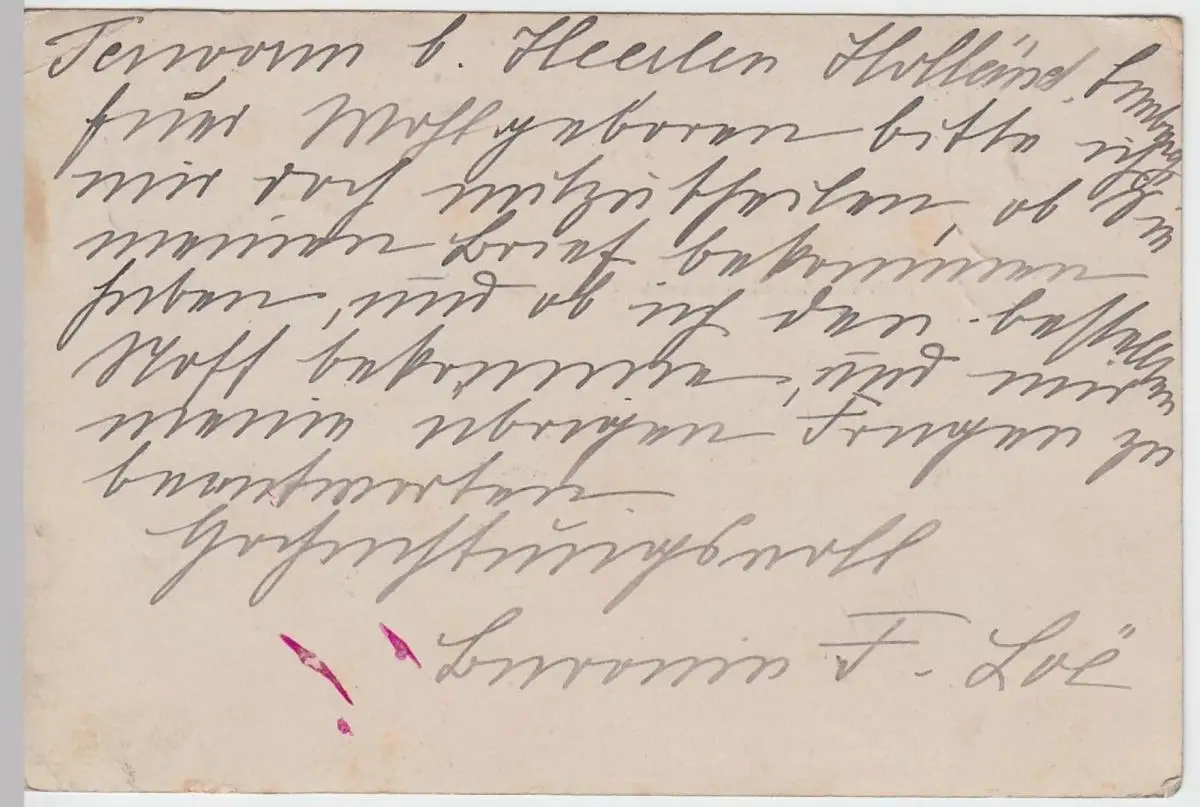 Terworm b. Heerlen Holland, Limburg
Euer Wohlgeboren bitte ich
mir doch mitzutheilen, ob Sie
meinen Brief bekommen
haben, und ob ich den bestellten
Stoff bekomme, und mir
meine übrigen Fragen zu
beantworten
Hochachtungsvoll
Baronin F. Loë